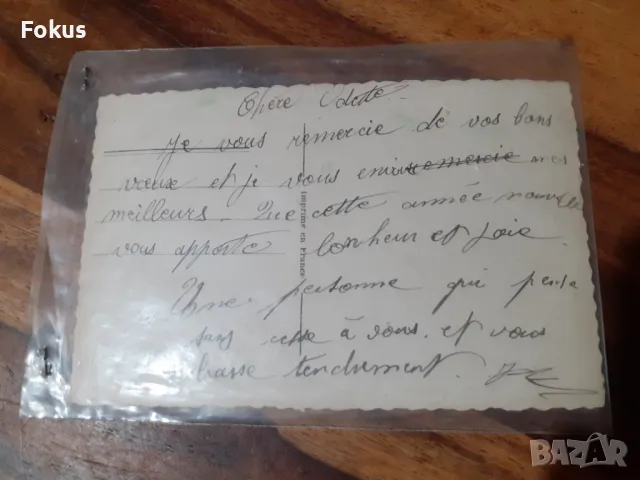 Fokus
Chère Odette.
Je vous remercie de vos bons
vœux et je vous envoie remercie mes
meilleurs - Que cette année nouvelle
vous apporte bonheur et joie.
Imprimé en France
Une personne qui pense
sans cesse à vous. et vous
embrasse tendrement.
BAZAR